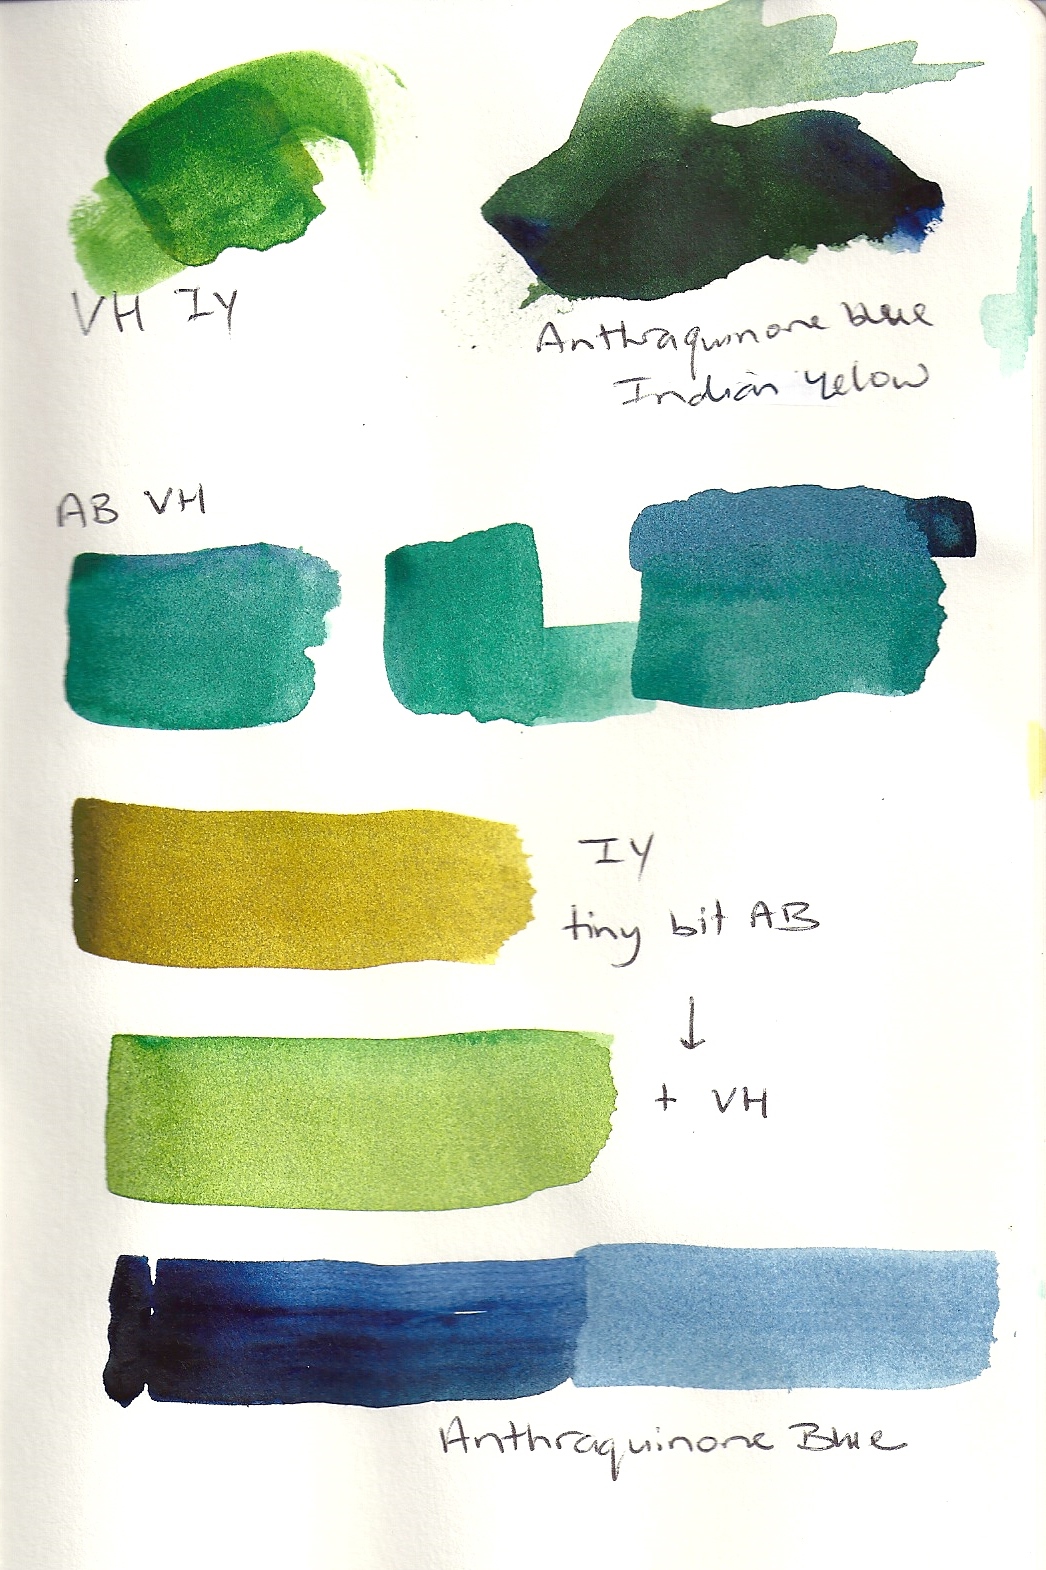 VH IY
Anthraquinone blue
Indian Yelow
AB VH
IY
tiny bit AB
↓
+ VH
Anthraquinone Blue